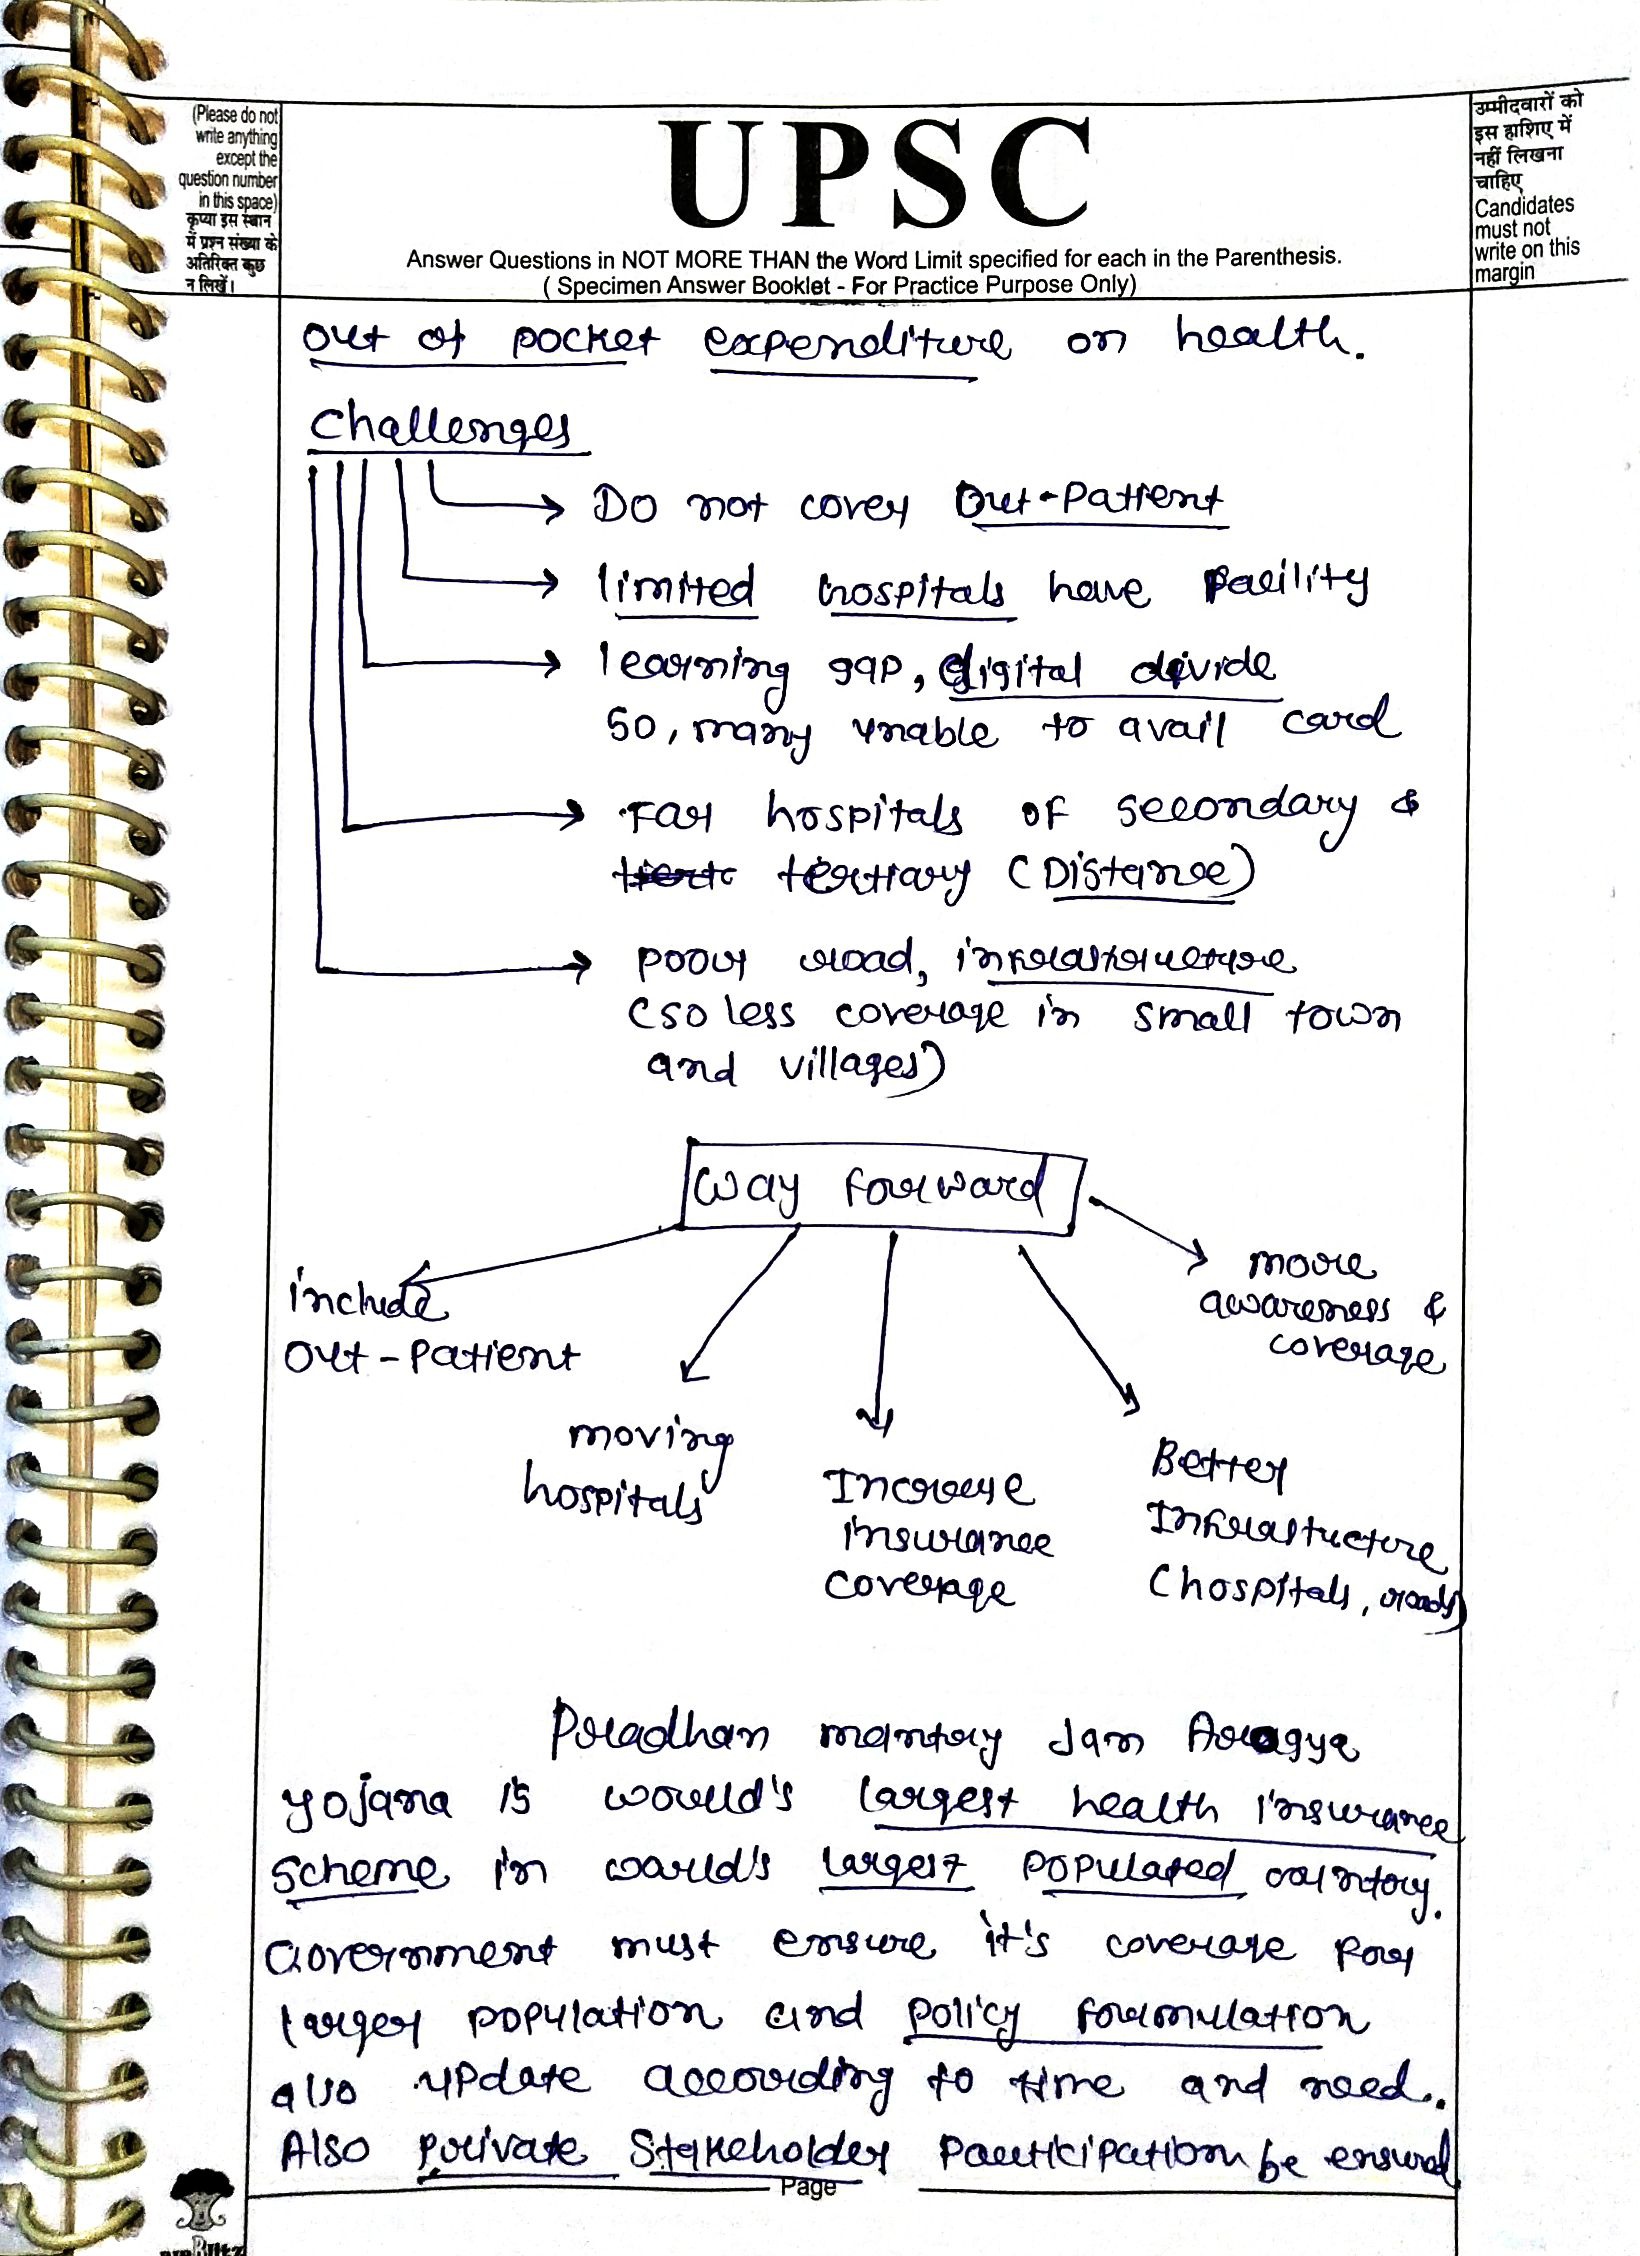 (Please do not
write anything
except the
question number
in this space)
कृप्या इस स्थान
में प्रश्न संख्या के
अतिरिक्त कुछ
न लिखें।
UPSC
Answer Questions in NOT MORE THAN the Word Limit specified for each in the Parenthesis.
( Specimen Answer Booklet - For Practice Purpose Only)
उम्मीदवारों को
इस हाशिए में
नहीं लिखना
चाहिए
Candidates
must not
write on this
margin
out of pocket expenditure on health.
Challenges
Do not cover Out-Patient
limited hospitals have facility
learning gap, digital divide
so, many unable to avail card
Far hospitals of secondary &
tertiary (Distance)
poor road, infrastructure
(so less coverage in small town
and villages)
Way forward
include
Out-Patient
moving
hospitals
Increase
insurance
coverage
Better
Infrastucture
(hospitals, roads)
more
awareness &
coverage
Pradhan mantry Jan Arogya
yojana is world's largest health insurance
scheme in world's largest populated country.
Government must ensure it's coverage for
larger population and policy formulation
also update according to time and need.
Also private stakeholder participation be ensured
Page